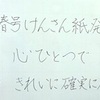 春号けんさん紙発
心ひとつで
きれいに確実に